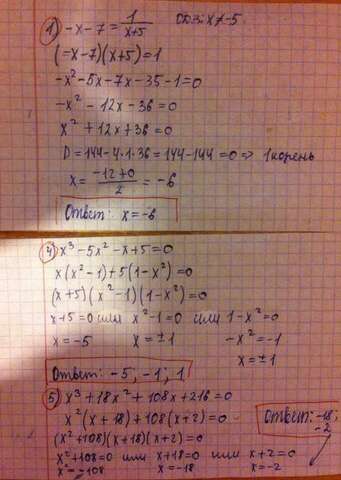 1) -x-7 = 1/(x+5) ОДЗ: x≠-5
(-x-7)(x+5)=1
-x²-5x-7x-35-1=0
-x²-12x-36=0
x²+12x+36=0
D=144-4·1·36=144-144=0 => 1 корень
x = (-12+0)/2 = -6
Ответ: x=-6
4) x³-5x²-x+5=0
x(x²-1)+5(1-x²)=0
(x+5)(x²-1)(1-x²)=0
x+5=0 или x²-1=0 или 1-x²=0
x=-5 x=±1 -x²=-1
x=±1
Ответ: -5; -1; 1
5) x³+18x²+108x+216=0
x²(x+18)+108(x+2)=0
Ответ: -18; -2
(x²+108)(x+18)(x+2)=0
x²+108=0 или x+18=0 или x+2=0
x²=-108 x=-18 x=-2